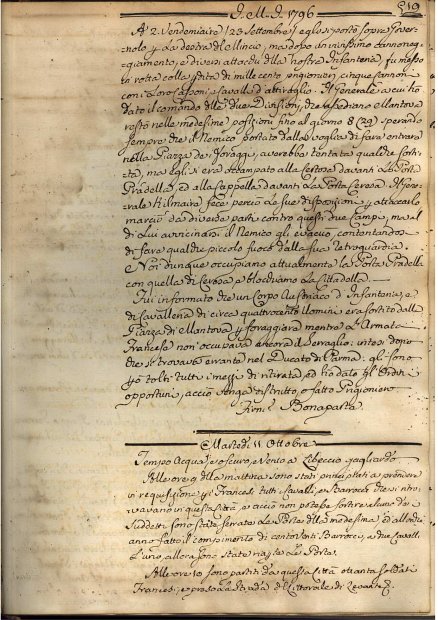 J. M. J. 1796 519
A' 2. Vendemiaire (23 Settembre) egli si portò sopra Gover-
nolo p. la destra del Mincio, ma dopo un vivissimo Cannoneg-
giamento, e diversi attacchi della nostra Infanteria, fu messo
in rotta colla perdita di mille cento prigionieri, cinque Cannoni
con i loro Cassoni, e Cavalli d'attiraglio. Il Generale a cui hò
dato il comando delle due Divisioni, che assediano Mantova
restò nelle medesime posizioni fino al giorno 8 (29) sperando
sempre che il Nemico portato dalla voglia di fare entrare
nella Piazza dei foraggi, averebbe tentata qualche sorti-
ta, ma egli si era accampato alla Certosa davanti la Porta
Pradella, ed alla Cappella davanti la Porta Ceresa. Il Gene-
rale Kilmaire fece perciò le sue disposizioni, p. attaccarlo
marciò da diverse parti contro questi due Campi, ma al
di lui avvicinarsi il Nemico gli evacuò, contentandosi
di fare qualche piccolo fuoco dalla sua retroguardia.
Noi dunque occupiamo attualmente la Porta Pradella
con quella di Ceresa, e blocchiamo la Cittadella.
Fui informato che un Corpo Austriaco d'Infanteria, e
di Cavalleria di circa quattrocento Uomini era sortito dalla
Piazza di Mantova p. foraggiare mentre l'Armata
Francese non occupava ancora il Serraglio: intesi dopo
che si trovava errante nel Ducato di Parma: gli sono
già tolti tutti i mezzi di ritirata, ed hò dato gl'Ordini
opportuni, acciò venga distrutto, o fatto Prigioniero
Firm: Bonaparte.
Martedì 11 Ottobre
Tempo Acqua, e oscuro, e Vento a Libeccio gagliardo
Alle ore 9 della mattina sono stati principiati a prendere
in requisizione p. i Francesi tutti i Cavalli, e Barrocci che si ritro-
vavano in questa Città, e acciò non potesse fortire alcuno dei
Suddetti sono state serrate le Porte della medesima, ed allorché
anno fatto il compimento di cento venti Barrocci, a due Cavalli
l'uno, allora sono state riaperte le Porte.
Alle ore 10 sono partiti da questa Città ottanta Soldati
Francesi, e preso la strada del Littorale di Levante